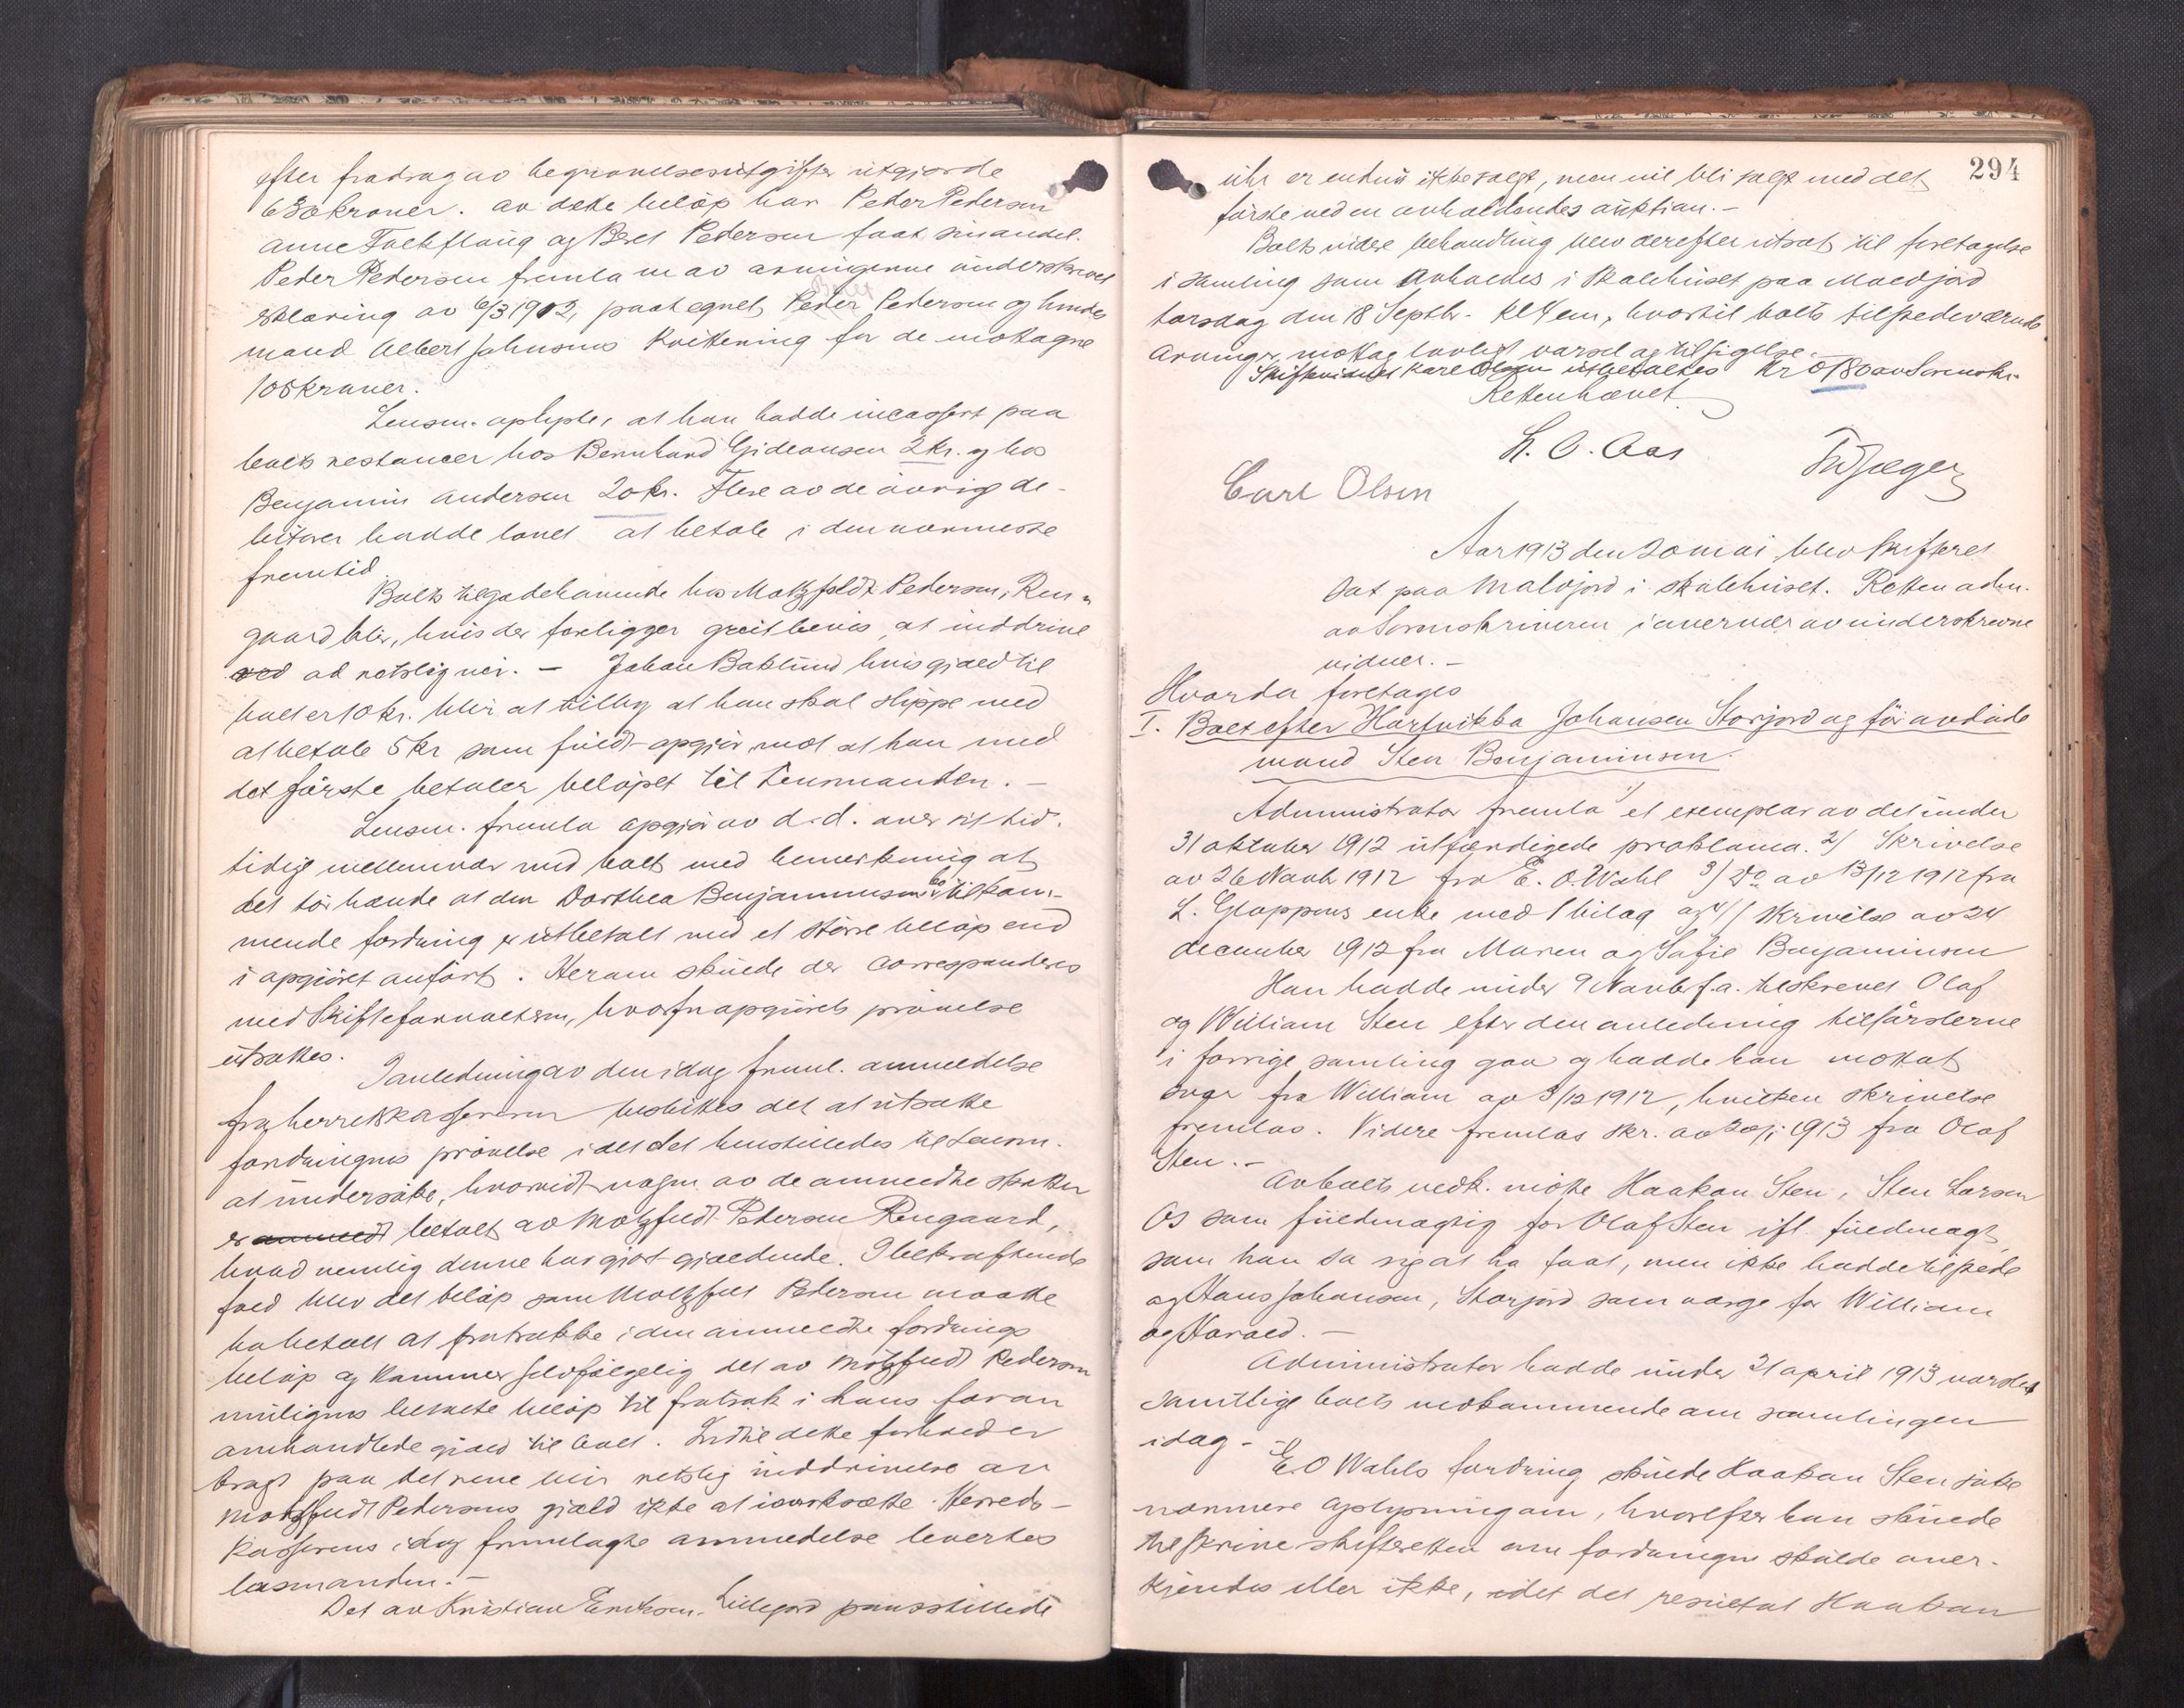 efter fradrag av begravelsesutgifter utgjorde
630 kroner. av dette beløp har Peder Pedersen
Anne Falchflaug og Beret Pedersen faat sin andel.
Peder Pedersen fremla en av arvingerne underskrevet
erklæring av 6/3 1912, paategnet Peder Pedersen og hendes
mand Albert Johnsens kvittering for de mottagne
105 kroner.
Lensm. oplyste, at han hadde incassert paa
boets restancer hos Bernhard Gideonsen 2 kr. og hos
Benjamin Andersen 20 kr. Flere av de øvrige de-
bitorer hadde lovet at betale i den nærmeste
fremtid.
Boets tilgodehavende hos Motzfeldt Pedersen, Ren-
gaard blir, hvis der foreligger greit bevis, at inddrive
ved ad retslig vei. - Johan Baklund hvis gjæld til
boet er 10 kr. blir at tilby at han skal slippe med
at betale 5 kr som fuldt opgjør, mot at han med
det første betaler beløpet til Lensmanden. -
Lensm. fremla opgjør av d.d. over sit hid-
tidige mellemvær med boet med bemerkning at
det tør hænde at den Dorthea Benjaminsens bo tilkom-
mende fordring er utbetalt med et større beløp end
i opgjøret anført. Herom skulde der correspanderes
med Skifteforvalteren, hvorfor opgjørets prøvelse
utsattes.
I anledning av den idag freml. anmeldelse
fra herredskassereren besluttes det at utsætte
fordringens prøvelse idet det henstilledes til Lensm.
at undersøke, hvorvidt nogen av de anmeldte skatter
er anmeldt betalt av Motzfeldt Pedersen Rengaard,
hvad nemlig denne har gjort gjældende. I bekræftende
fald blev det beløp som Motzfeldt Pedersen maatte
ha betalt at fratrække i den anmeldte fordrings
beløp og kommer selvfølgelig det av Motzfeldt Pedersen
muligens betalte beløp til fratræk i hans foran
omhandlede gjæld til boet. Indtil dette forhold er
bragt paa det rene blir retslig inddrivelse av
Motzfeldt Pedersens gjæld ikke at iverksætte. Herreds-
kasserens idag fremlagte anmeldelse levertes
lensmanden. -
Det av Kristian Eriksen, Lillejord pantstillede
294
uhr er endnu ikke solgt, men vil bli solgt med det
første ved en avholdendes auktion. -
Boets videre behandling blev derefter utsat til foretagelse
i samling som avholdes i skolehuset paa Maløjord
torsdag den 18 Septbr. kl 4 em, hvortil boets tilstedeværende
arvinger mottog lovligt varsel og tilsigelse. -
Skiftevidnet Karl Olsen utbetaltes Kr 0,80 av Sorenskr.
Retten hævet
L. O. Aas
Carl Olsen
Aar 1913 den 20 mai blev skifteret
sat paa Maløjord i skolehuset. Retten adm.
av Sorenskriveren i overvær av underskrevne
vidner. -
Hvorda foretages
I. Boet efter Hartvikka Johansen Storjord og før avdøde
mand Sten Benjaminsen.
Administrator fremla 1/ et exemplar av det under
31 oktober 1912 utfærdigede proklama. 2/ Skrivelse
av 26 Novbr 1912 fra E. O. Wahl 3/ Do av 13/12 1912 fra
L. Gloppens enke med 1 bilag og 4/ skrivelse av 24
december 1912 fra Maren og Sofie Benjaminsen
Han hadde under 9 Novbr f.a. tilskrevet Olaf
og William Sten efter den anledning tilførslerne
i forrige samling gav og hadde han mottat
svar fra William av 3/12 1912, hvilken skrivelse
fremlas. Videre fremlas skr. av 20/1 1913 fra Olaf
Sten. -
Av boets vedk. møtte Haakon Sten, Sten Larsen
Os som fuldmægtig for Olaf Sten ifl. fuldmagt
som han sa sig at ha faat, men ikke hadde tilstede
og Hans Johansen, Storjord som værge for William
og Harald. -
Administrator hadde under 21 april 1913 varslet
samtlige boets vedkommende om samlingen
idag. -
E. O Wahls fordring skulde Haakon Sten søke
nærmere oplysning om, hvorefter han skulde
tilskrive skifteretten om fordringen skulde aner-
kjendes eller ikke, idet det resultat Haakon